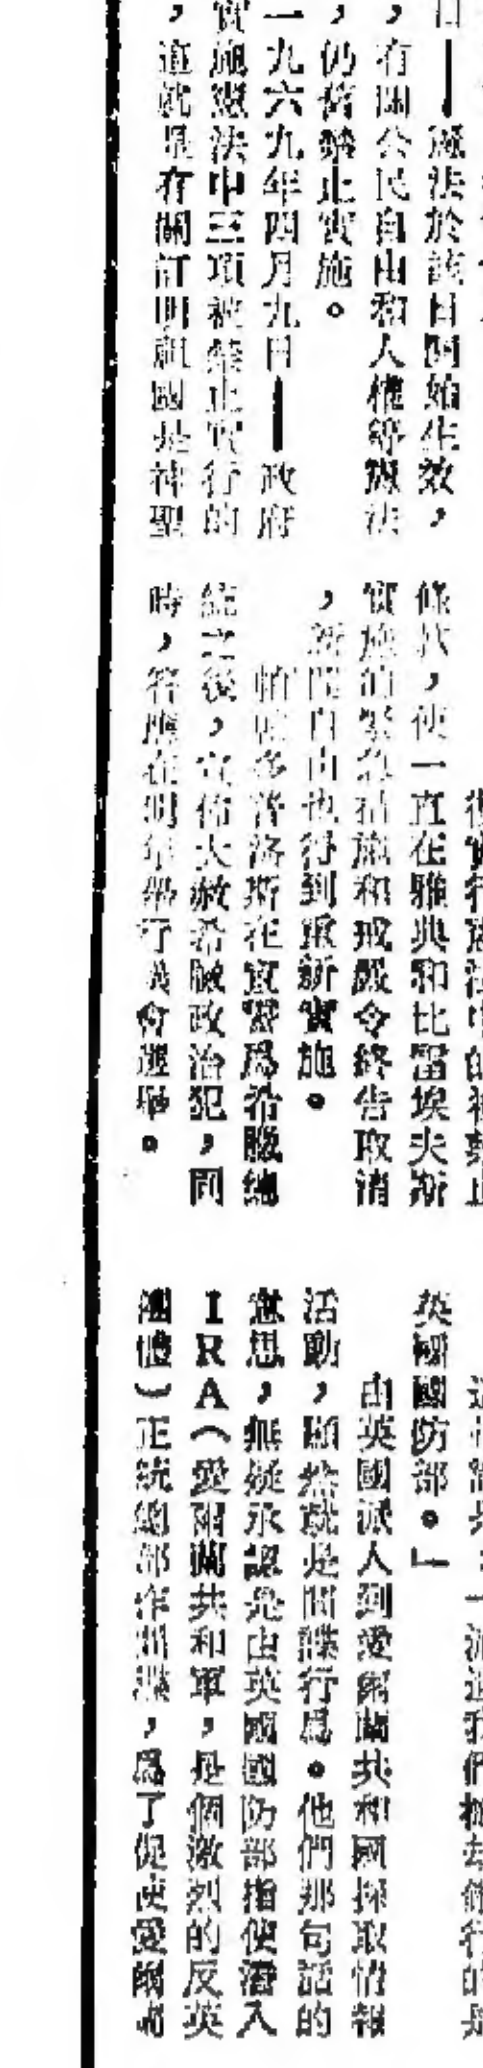 日——憲法於該日開始生效，
，有關公民自由和人權等憲法
，仍舊禁止實施。
一九六九年四月九日——政府
實施憲法中三項被禁止實行的
，這就是有關訂明祖國是神聖
復實行憲法中的被禁止
條款，使一直在雅典和比雷埃夫斯
實施的緊急措施和戒嚴令終告取消
，新聞自由也得到重新實施。
帕帕多普洛斯在宣誓為希臘總
統之後，宣佈大赦希臘政治犯，同
時，答應在明年舉行議會選舉。
英國國防部。」
由英國派人到愛爾蘭共和國採取情報
活動，顯然就是間諜行為。他們那句話的
意思，無疑承認是由英國國防部指使潛入
IRA（愛爾蘭共和軍，是個激烈的反英
團體）正統總部作間諜，為了促使愛爾蘭